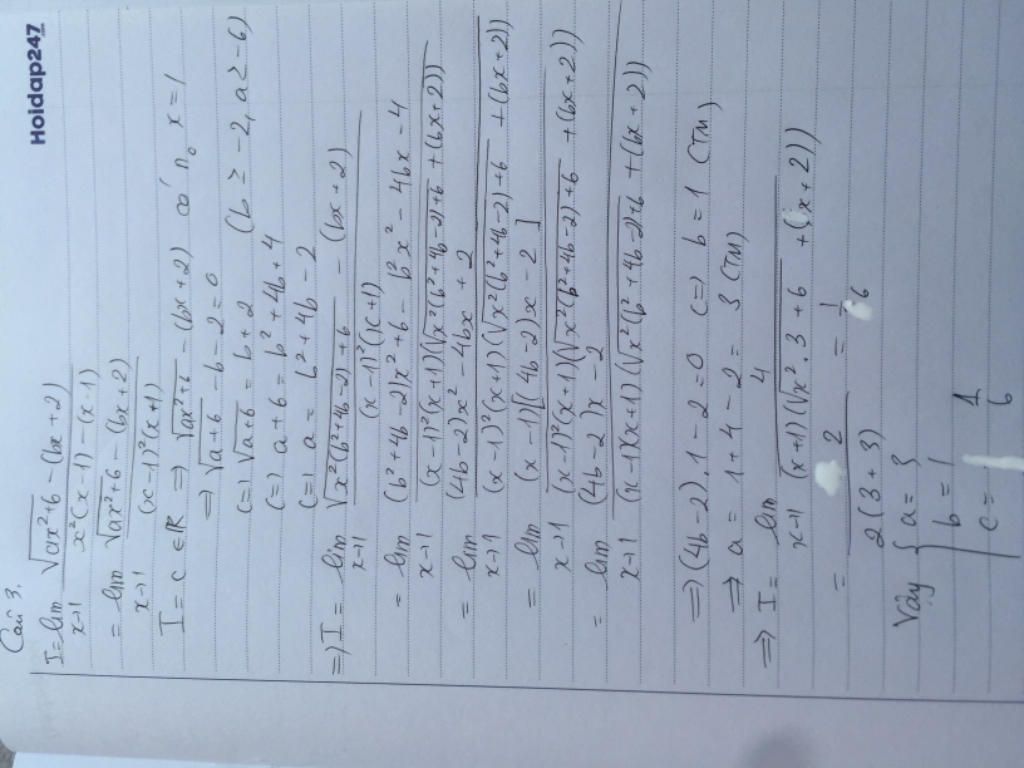 Hoidap247
Câu 3.
I = lim x→1 (√(ax²+6) - (bx+2)) / (x²(x-1) - (x-1))
= lim x→1 (√(ax²+6) - (bx+2)) / ((x-1)²(x+1))
I = c ∈ R => √(ax²+6) - (bx+2) có n₀ x = 1
=> √(a+6) - b - 2 = 0
(=) √(a+6) = b + 2 (b ≥ -2, a ≥ -6)
(=) a + 6 = b² + 4b + 4
(=) a = b² + 4b - 2
=) I = lim x→1 (√(x²(b²+4b-2)+6) - (bx+2)) / ((x-1)²(x+1))
= lim x→1 ((b²+4b-2)x² + 6 - b²x² - 4bx - 4) / ((x-1)²(x+1)(√(x²(b²+4b-2)+6) + (bx+2)))
= lim x→1 ((4b-2)x² - 4bx + 2) / ((x-1)²(x+1)(√(x²(b²+4b-2)+6) + (bx+2)))
= lim x→1 ((x-1)[(4b-2)x - 2]) / ((x-1)²(x+1)(√(x²(b²+4b-2)+6) + (bx+2)))
= lim x→1 ((4b-2)x - 2) / ((x-1)(x+1)(√(x²(b²+4b-2)+6) + (bx+2)))
=> (4b-2).1 - 2 = 0 (=) b = 1 (TM)
=> a = 1 + 4 - 2 = 3 (TM)
=> I = lim x→1 4 / ((x+1)(√(x².3+6) + (x+2)))
= 2 / (2(3+3)) = 1/6
Vậy { a = 3
b = 1
c = 1/6